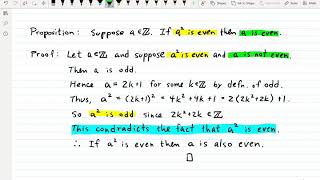 Proposition: Suppose a ∈ ℤ. If a² is even then a is even.
Proof: Let a ∈ ℤ and suppose a² is even and a is not even.
Then a is odd.
Hence a = 2k+1 for some k ∈ ℤ by defn. of odd.
Thus, a² = (2k+1)² = 4k² + 4k + 1 = 2(2k²+2k) + 1.
So a² is odd since 2k²+2k ∈ ℤ
This contradicts the fact that a² is even.
∴ If a² is even then a is also even.
□